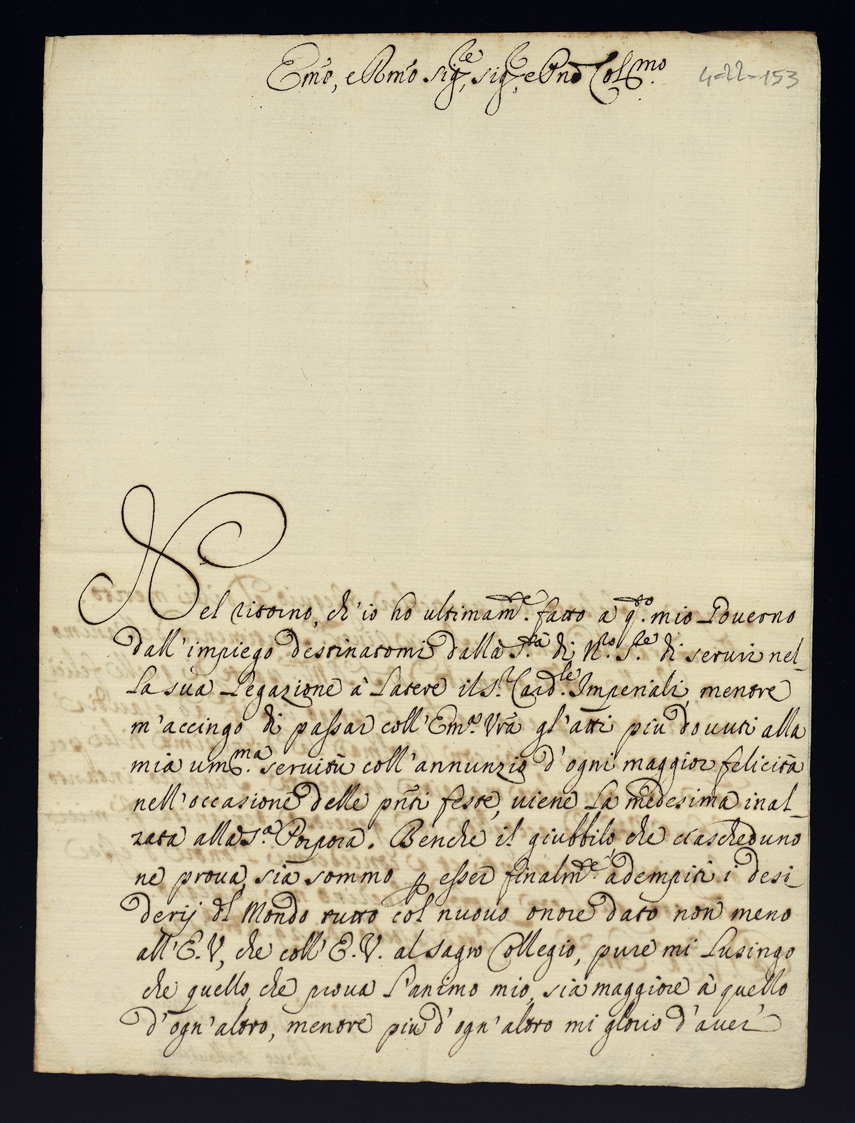 Emo, e Rmo Sigre, Sigre, e Pne Colmo
4-22-153
Nel ritorno, ch'io ho ultimamte. fatto a qto. mio Governo
dall'impiego destinatomi dalla Stà di Nro Sre di servir nel-
la sua Legazione à Latere il Sr Cardle Imperiali, mentre
m'accingo di passar coll'Emza Vrà gl'atti più dovuti alla
mia umma. servitù coll'annunzio d'ogni maggior felicità
nell'occasione delle pnti feste, viene la medesima inal-
zata alla Sa Porpora. Benche il giubbilo, che ciascheduno
ne prova, sia sommo p esser finalmte adempiti i desi-
derij del Mondo tutto col nuovo onore dato non meno
all'E.V., che coll'E.V. al Sagro Collegio, pure mi lusingo
che quello, che prova l'animo mio, sia maggiore à quello
d'ogn'altro, mentre più d'ogn'altro mi glorio d'aver